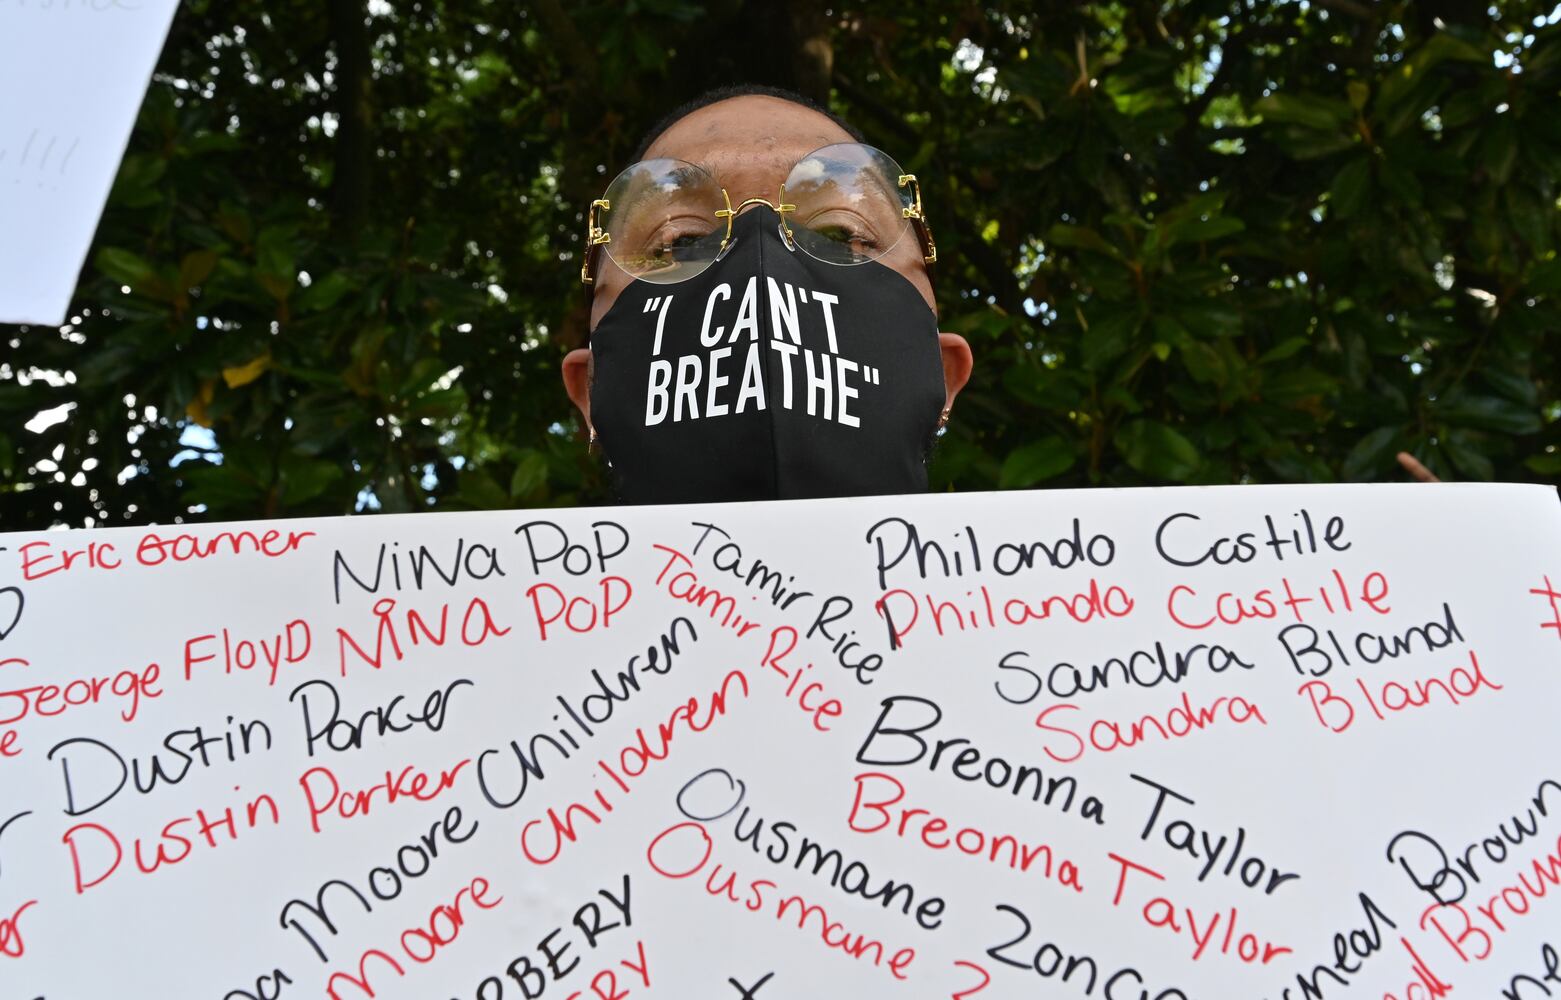 "I CAN'T
BREATHE"
Eric Garner
NiNa PoP
NiNa PoP
Tamir Rice
Tamir Rice
Philando Castile
Philando Castile
George Floyd
Sandra Bland
Sandra Bland
Dustin Parker
Dustin Parker
Moore Children
Moore Children
Breonna Taylor
Breonna Taylor
Ousmane Zongo
Ousmane
Brown
Brown
!!!